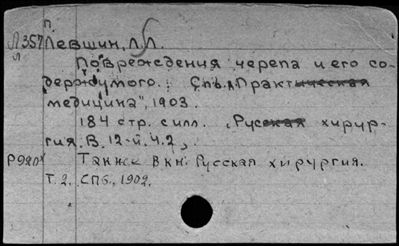 П.
Л357 Левшин, Л.Л.
Л
Повреждения черепа и его со-
держимого. Спб. „Практическая
медицина", 1903.
184 стр. с илл. „Русская хирур-
гия. В. 12-й. Ч.2„.
Р920 Также в кн. Русская хирургия.
Т. 2. СПб., 1902.